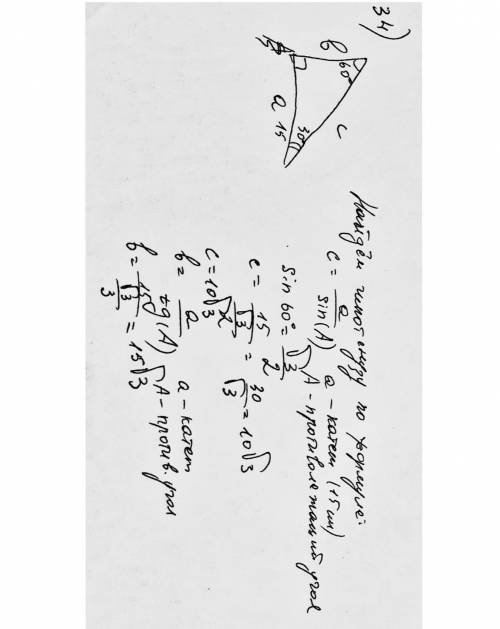 34)
b
60°
c
a 15
30°
Найдём гипотенузу по формуле:
c = a / sin(A) a - катет (15 см)
A - противолежащий угол
sin 60° = √3/2
c = 15 / (√3/2) = 30/√3 = 10√3
c = 10√3
b = a / tg(A) a - катет
A - против. угол
b = 15 / (√3/3) = 15√3